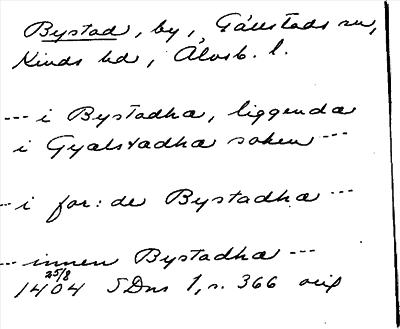 Bystad, by, Gällstads sn,
Kinds hd, Älvsb. l.
--- i Bystadha, liggenda
i Gyalstadha soken ---
-- i for: de Bystadha ---
--- innen Bystadha ---
25/8
1404 SDns 1, s. 366 orig